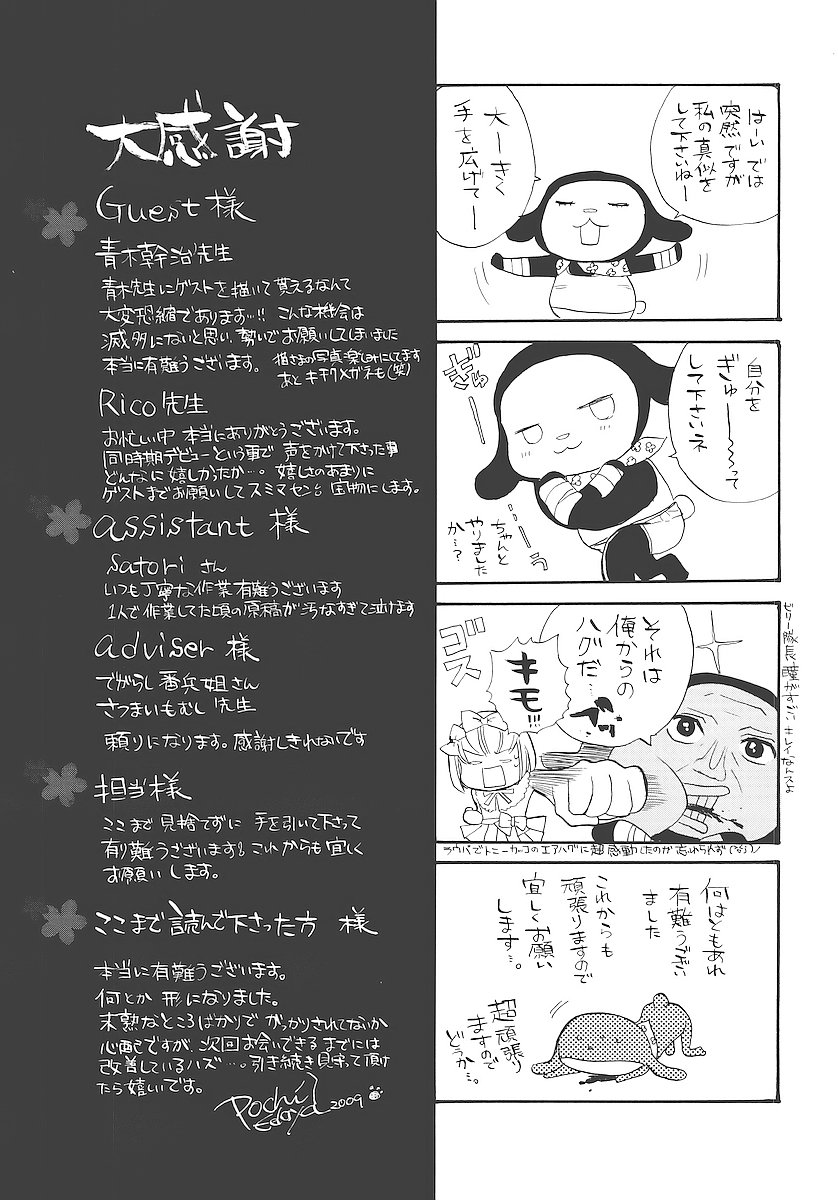 大感謝
Guest様
青木幹治先生
青木先生にゲストを描いて貰えるなんて
大変恐縮であります…!! こんな機会は
滅多にないと思い、勢いでお願いしてしまいました
本当に有難うございます。 猫さまの写真楽しみにしてます
あと キチク×メガネも(笑)
Rico先生
お忙しい中 本当にありがとうございます。
同時期デビューという事で 声をかけて下さった事
どんなに嬉しかったか…。嬉しさのあまりに
ゲストまでお願いしてスミマセン。宝物にします。
assistant 様
Satori さん
いつも丁寧な作業有難うございます
1人で作業してた頃の原稿が汚なすぎて泣けます
adviser 様
でがらし番兵姐さん
さつまいもむし先生
頼りになります。感謝しきれないです
担当様
ここまで見捨てずに 手を引いて下さって
有り難うございます。これからも宜しく
お願いします。
ここまで読んで下さった方 様
本当に有難うございます。
何とか 形になりました。
未熟なところばかりで がっかりされてないか
心配ですが、次回お会いできるまでには
改善しているハズ…。引き続き見守って頂け
たら嬉しいです。
Pochi
Edoya
2009
はーい では
突然ですが
私の真似を
して下さいねー
大ーきく
手を広げてー
自分を
ぎゅ〜〜って
して下さいネ
ぎゅ
ーっ
ちゃんと
やりました
か…?
それは
俺からの
ハグだ…
キモ!!!
ゴス
ゴス
ビリー隊長、瞳がすごいキレイなんスよ
ラウパでトニーカッコのエアハグに超感動したのが忘れられず(なう)ノ
何はともあれ
有難うござい
ました
これからも
頑張りますので
宜しくお願い
します…。
超頑張り
ますので
どうか…。